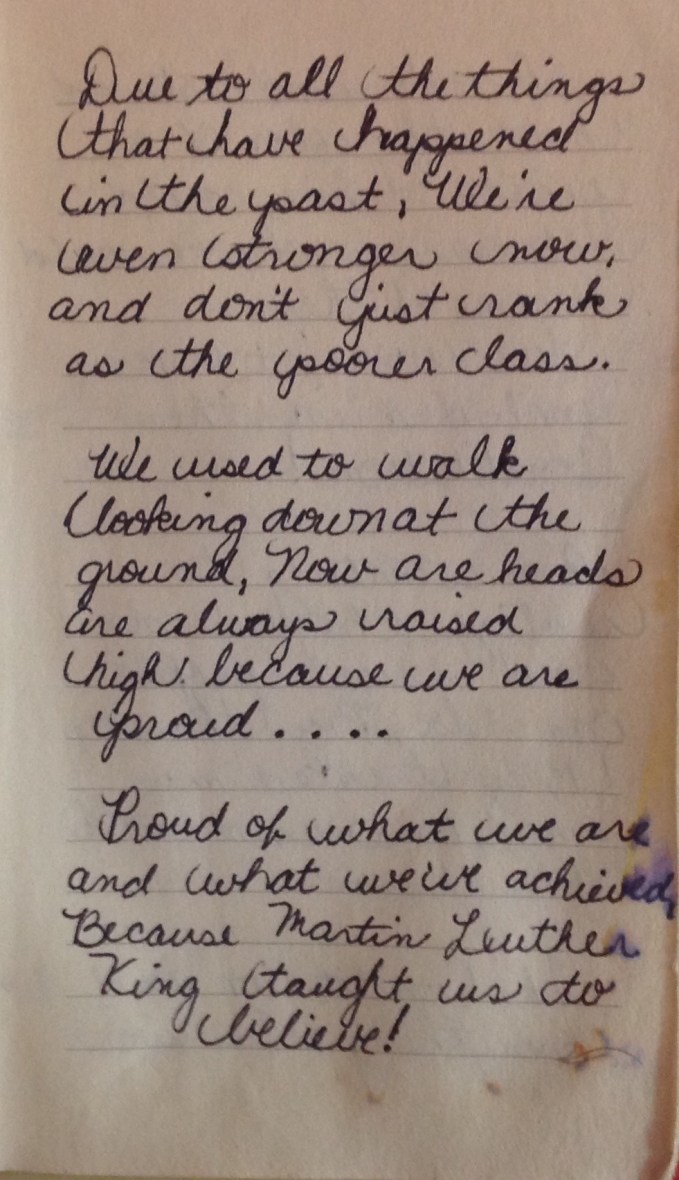 Due to all the things
that have happened
in the past, We're
even stronger now,
and don't just rank
as the poorer class.
We used to walk
looking down at the
ground, Now are heads
are always raised
high because we are
proud . . . .
Proud of what we are
and what we've achieved,
Because Martin Leuther
King taught us to
believe!